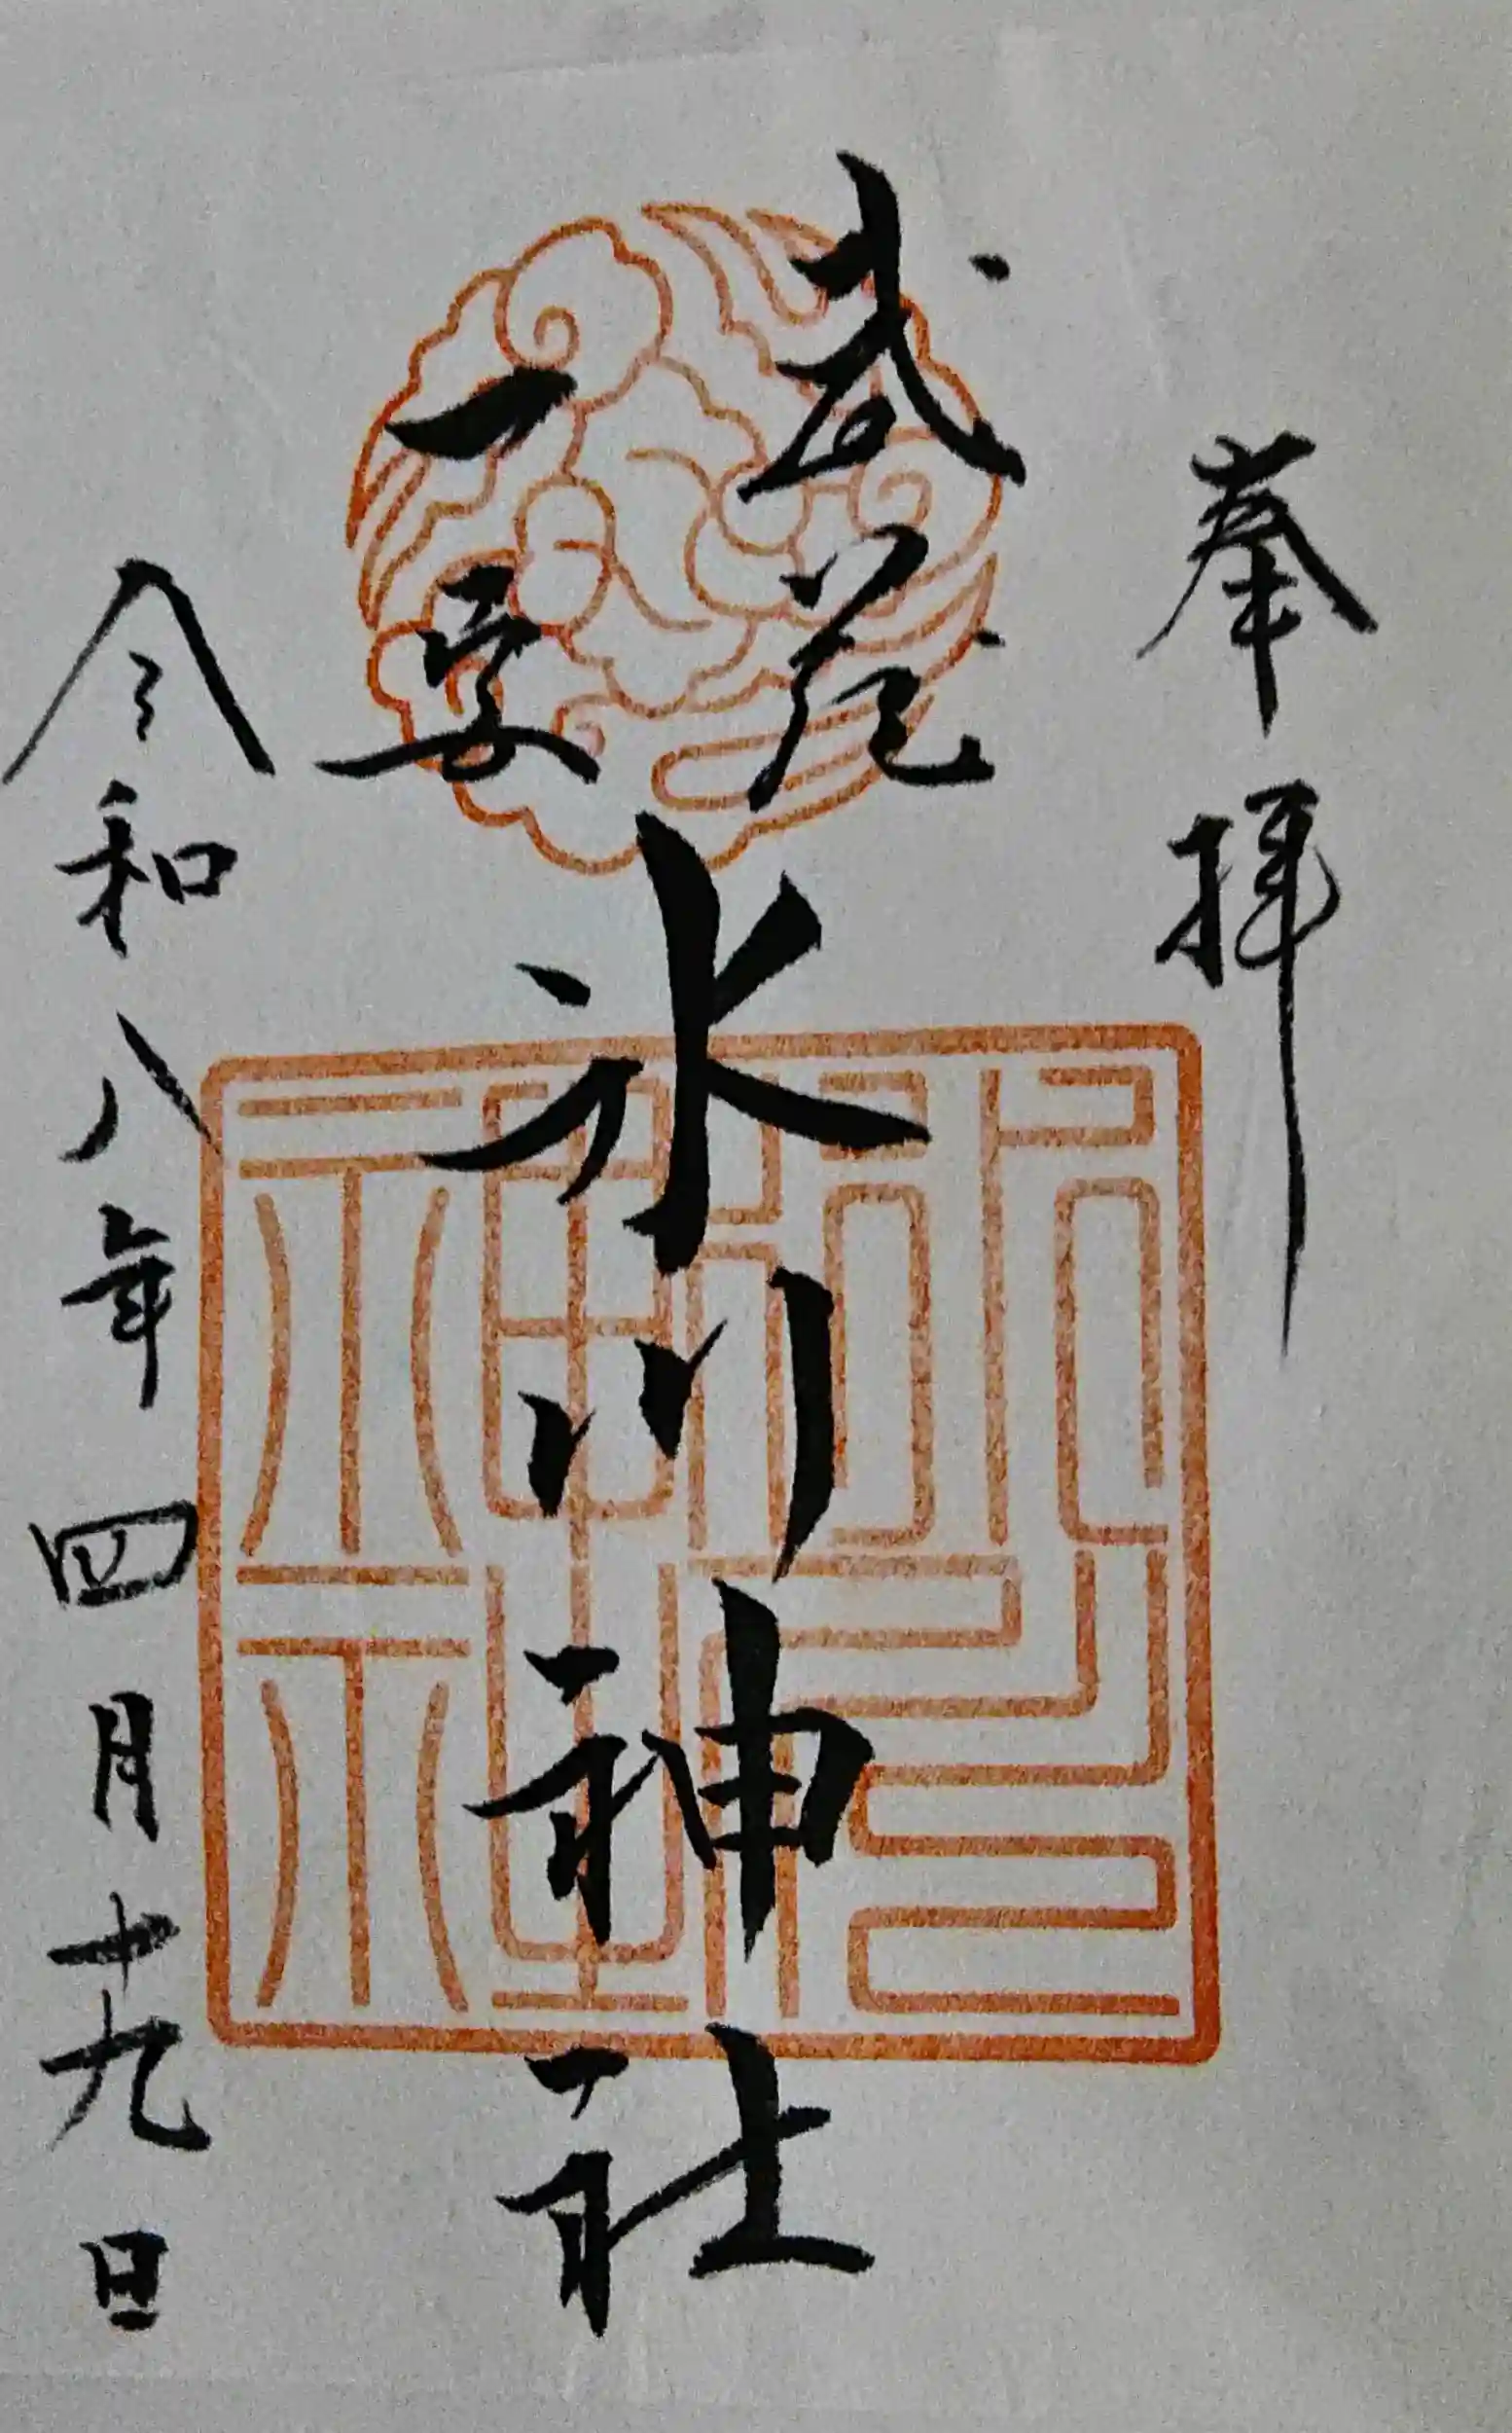 奉拝
武蔵
一宮
氷川神社
令和八年四月十九日